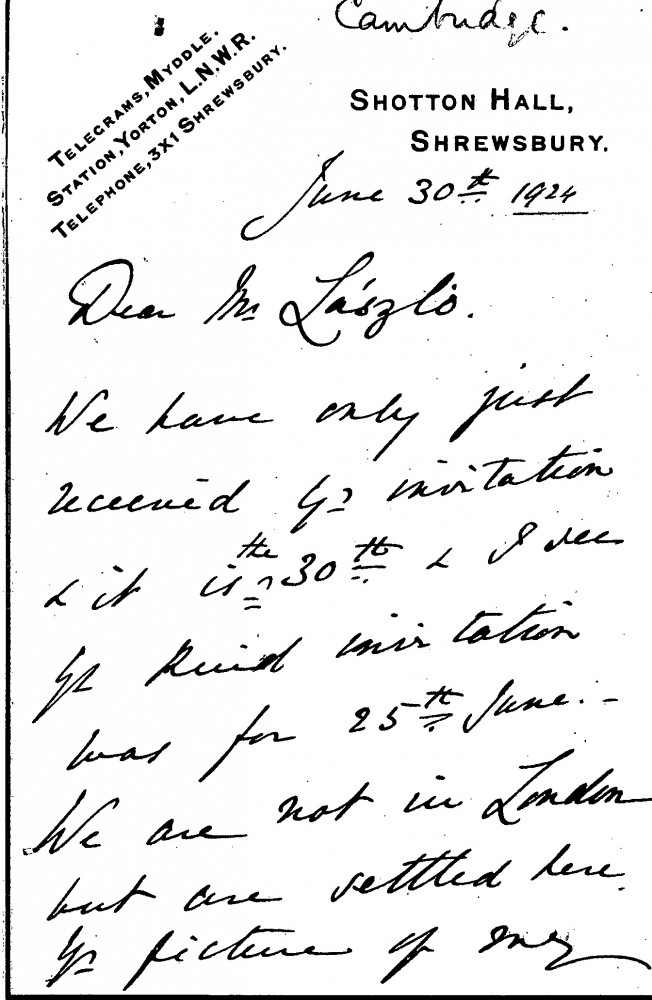 Cambridge.
TELEGRAMS, MYDDLE.
STATION, YORTON, L.N.W.R.
TELEPHONE, 3X1 SHREWSBURY.
SHOTTON HALL,
SHREWSBURY.
June 30th 1924
Dear Mr László.
We have only just
received yr invitation
& it is the 30th & I see
yr kind invitation
was for 25th June. -
We are not in London
but are settled here.
Yr picture of my